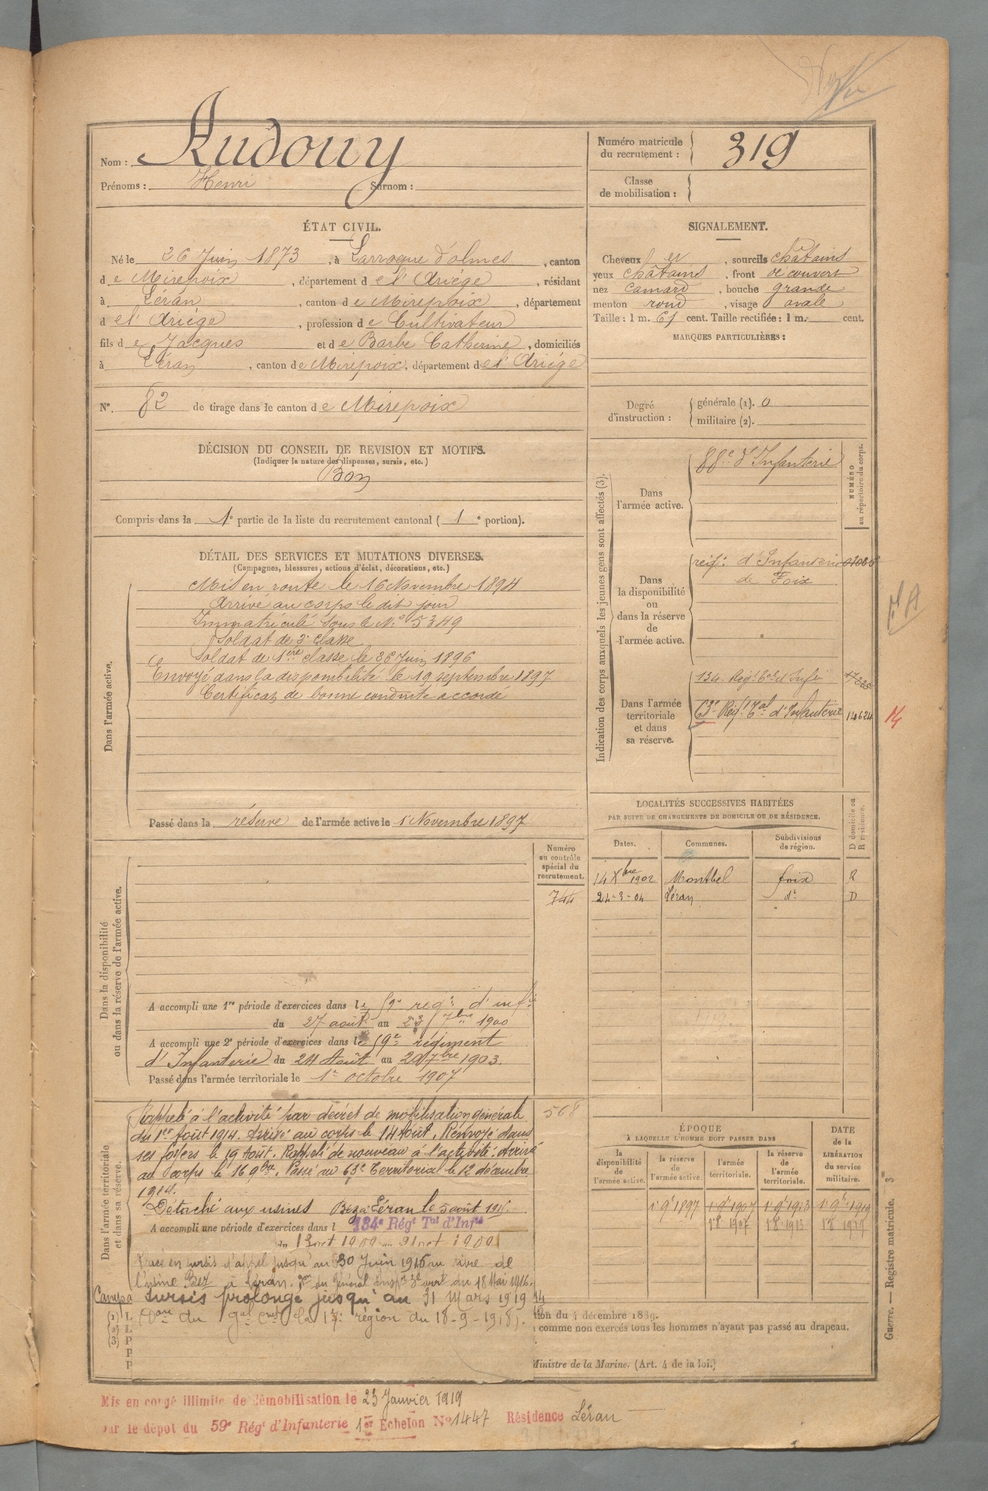 Nom : Audouy
Prénoms : Henri Surnom :
Numéro matricule du recrutement : 319
Classe de mobilisation :
ÉTAT CIVIL.
Né le 26 Juin 1873, à Larroque d'olmes, canton
de Mirepoix, département de l'Ariège, résidant
à Léran, canton de Mirepoix, département
de l'Ariège, profession de Cultivateur
fils de Jacques et de Barbe Catherine, domiciliés
à Léran, canton de Mirepoix, département de l'Ariège
N° 82 de tirage dans le canton de Mirepoix
SIGNALEMENT.
Cheveux et, sourcils châtains
yeux châtains, front découvert
nez camard, bouche grande
menton rond, visage ovale
Taille : 1 m. 61 cent. Taille rectifiée : 1 m. cent.
MARQUES PARTICULIÈRES :
Degré d'instruction : générale (1). 0
militaire (2).
DÉCISION DU CONSEIL DE REVISION ET MOTIFS.
(Indiquer la nature des dispenses, sursis, etc.)
Bon
Compris dans la 1e partie de la liste du recrutement cantonal ( 1e portion).
DÉTAIL DES SERVICES ET MUTATIONS DIVERSES.
(Campagnes, blessures, actions d'éclat, décorations, etc.)
Dans l'armée active.
Mis en route le 16 Novembre 1894
Arrivé au corps le dit jour
Immatriculé sous le N° 5349
Soldat de 2e classe
Soldat de 1ère classe le 26 Juin 1896
Envoyé dans la disponibilité le 19 septembre 1897
Certificat de bonne conduite accordé
Passé dans la réserve de l'armée active le 1 Novembre 1897
Indication des corps auxquels les jeunes gens sont affectés (3).
NUMÉRO au répertoire du corps.
Dans l'armée active.
88e d'Infanterie
Dans la disponibilité ou dans la réserve de l'armée active.
d'Infanterie
de Foix
Dans l'armée territoriale et dans sa réserve.
134 Régt
Régt d'Infanterie 14624
14
LOCALITÉS SUCCESSIVES HABITÉES
PAR SUITE DE CHANGEMENTS DE DOMICILE OU DE RÉSIDENCE.
Dates. Communes. Subdivisions de région. D domicile ou R résidence.
14 Xbre 1902 Montbel foix R
24-3-04 Léran do D
Dans la disponibilité ou dans la réserve de l'armée active.
Numéro au contrôle spécial du recrutement.
744
A accompli une 1re période d'exercices dans le 59e régt d'inf
du 27 août au 23 7bre 1900
A accompli une 2e période d'exercices dans le 59e régiment
d'Infanterie du 24 Août au 20 7bre 1903.
Passé dans l'armée territoriale le 1er octobre 1907
Dans l'armée territoriale et dans sa réserve.
568
Rappelé à l'activité par décret de mobilisation générale
du 1er Août 1914. Arrivé au corps le 14 Août. Renvoyé dans
ses foyers le 19 Août. Rappelé de nouveau à l'activité; arrivé
au Corps le 16 9bre. Passé au 63e Territorial le 12 décembre
1914.
Détaché aux usines Bez à Léran le 5 août 1915.
A accompli une période d'exercices dans l 134e Régt Tal d'Infie
Passé en sursis d'appel jusqu'au 30 Juin 1916 au titre de
l'usine Bez à Léran. du 18 Mai 1916.
sursis prolongé jusqu'au 31 Mars 1919
du la 17e région du 18-9-1918).
ÉPOQUE
À LAQUELLE L'HOMME DOIT PASSER DANS
la disponibilité de l'armée active. la réserve de l'armée active. l'armée territoriale. la réserve de l'armée territoriale. DATE de la LIBÉRATION du service militaire.
1er 9bre 1897 1er 9bre 1907 1er 9bre 1913 1er 9bre 1919
du 4 décembre 1889.
comme non exercés tous les hommes n'ayant pas passé au drapeau.
Ministre de la Marine. (Art. 4 de la loi.)
Guerre. — Registre matricule.
Mis en congé illimité de démobilisation le 23 Janvier 1919
par le dépôt du 59e Régt d'Infanterie 1er Échelon N° 1447 Résidence Léran